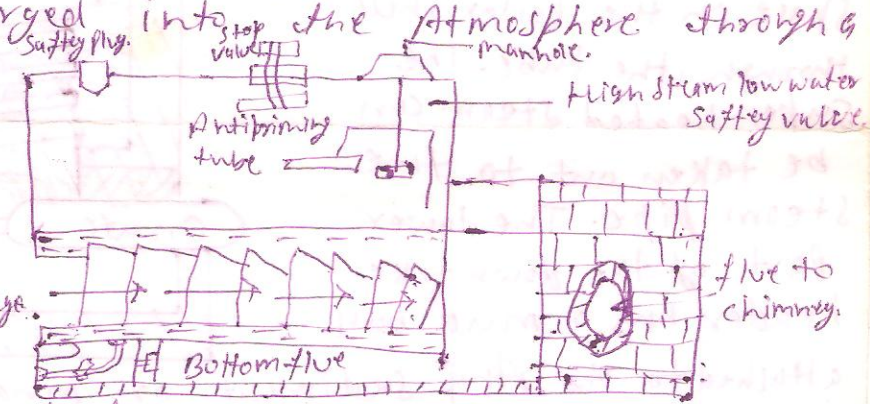 rged into the Atmosphere through a
Saftey plug.
stop
valve
manhole.
High Steam low water
Saftey valve
Antipriming
tube
flue to
chimney.
ge.
Bottom flue